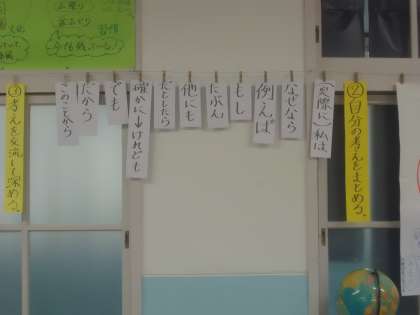 ②自分の考えをまとめる。
(実際に)私は
なぜなら
例えば
もし
たぶん
他にも
だとしたら
確かに→けれども
でも
だから
このことから
③考えを交流して深める。